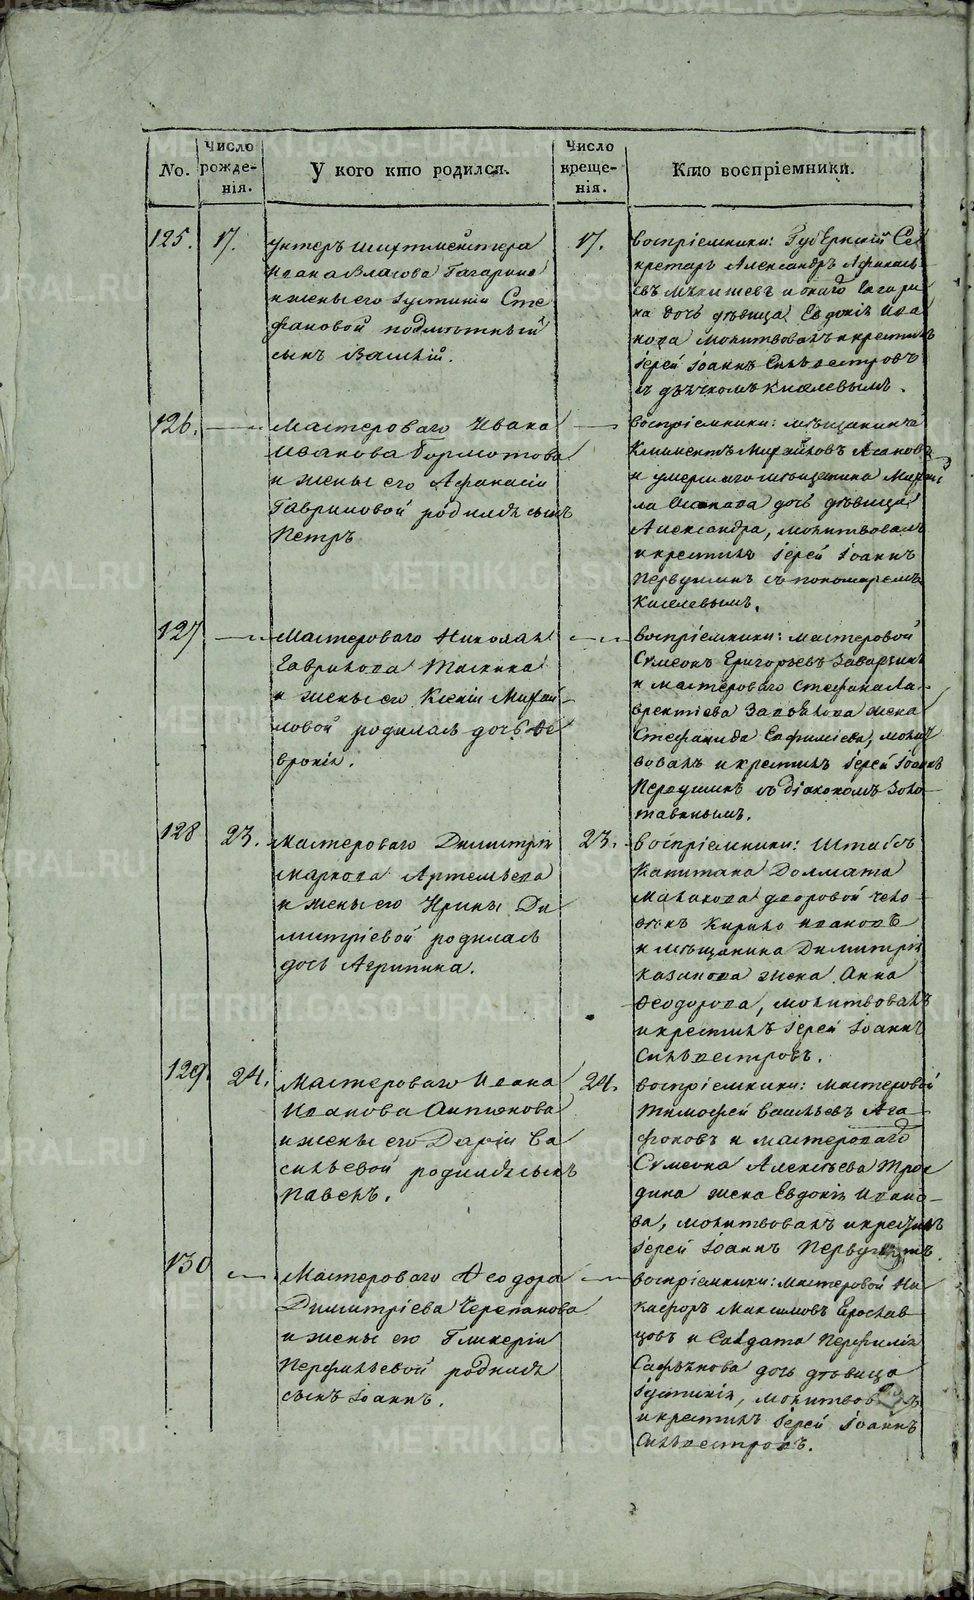 No.
Число рожденія.
У кого кто родился.
Число крещенія.
Кто воспріемники.
125.
17.
Унтеръ шихтмейстера
Ивана Власова Гагарина
и жены его Іустиніи Сте
фановой
сынъ Василій.
17.
Воспріемники: Губернскій Се
кретарь Александръ Афанась
евъ и онаго Гагари
на дочь дѣвица Евдокія Ива
нова молитвовалъ и крестилъ
Іерей Іоаннъ Сильвестровъ
съ дьячкомъ Киселевымъ.
126.
Мастероваго Ивана
Иванова Бормотова
и жены его Афанасіи
Гавриловой родился сынъ
Петръ
воспріемники: мѣщанинъ
Климентъ Михайловъ
и умершаго мѣщанина Михаи
ла дочь дѣвица
Александра, молитвовалъ
и крестилъ Іерей Іоаннъ
Первушинъ съ пономаремъ
Киселевымъ.
127
Мастероваго Николая
Гаврилова
и жены его Ксеніи Михай
ловой родилась дочь Фе
вронія.
воспріемники: мастеровой
Сумеонъ Григорьевъ
и мастероваго Стефана Ла
врентіева жена
Стефанида Евфиміева, молит
вовалъ и крестилъ Іерей Іоаннъ
Первушинъ съ діакономъ Золо
тавинымъ.
128
23.
Мастероваго Димитрія
Маркова Артемьева
и жены его Ирины Ди
митріевой родилась
дочь Агрипина.
23.
Воспріемники: Штабсъ
Капитана Долмата
Малахова дворовой чело
вѣкъ Кирило Ивановъ
и мѣщанина Димитрія
Казакова жена Анна
Феодорова, молитвовалъ
и крестилъ Іерей Іоаннъ
Сильвестровъ.
129.
24.
Мастероваго Ивана
Иванова Антонова
и жены его Даріи Ва
сильевой родился сынъ
Павелъ.
24.
воспріемники: Мастеровой
Тимофей Васильевъ Ага
фоновъ и мастероваго
Сумеона Алексѣева
жена Евдокія Ивано
ва, молитвовалъ и крестилъ
Іерей Іоаннъ Первушинъ.
130
Мастероваго Феодора
Димитріева Черепанова
и жены его Гликеріи
Перфильевой родился
сынъ Іоаннъ.
воспріемники: мастеровой Ни
кифоръ Максимовъ Ерослав
цовъ и Солдата Перфилія
дочь дѣвица
Іустинія, молитвовалъ
и крестилъ Іерей Іоаннъ
Сильвестровъ.
METRIKI.GASO-URAL.RU